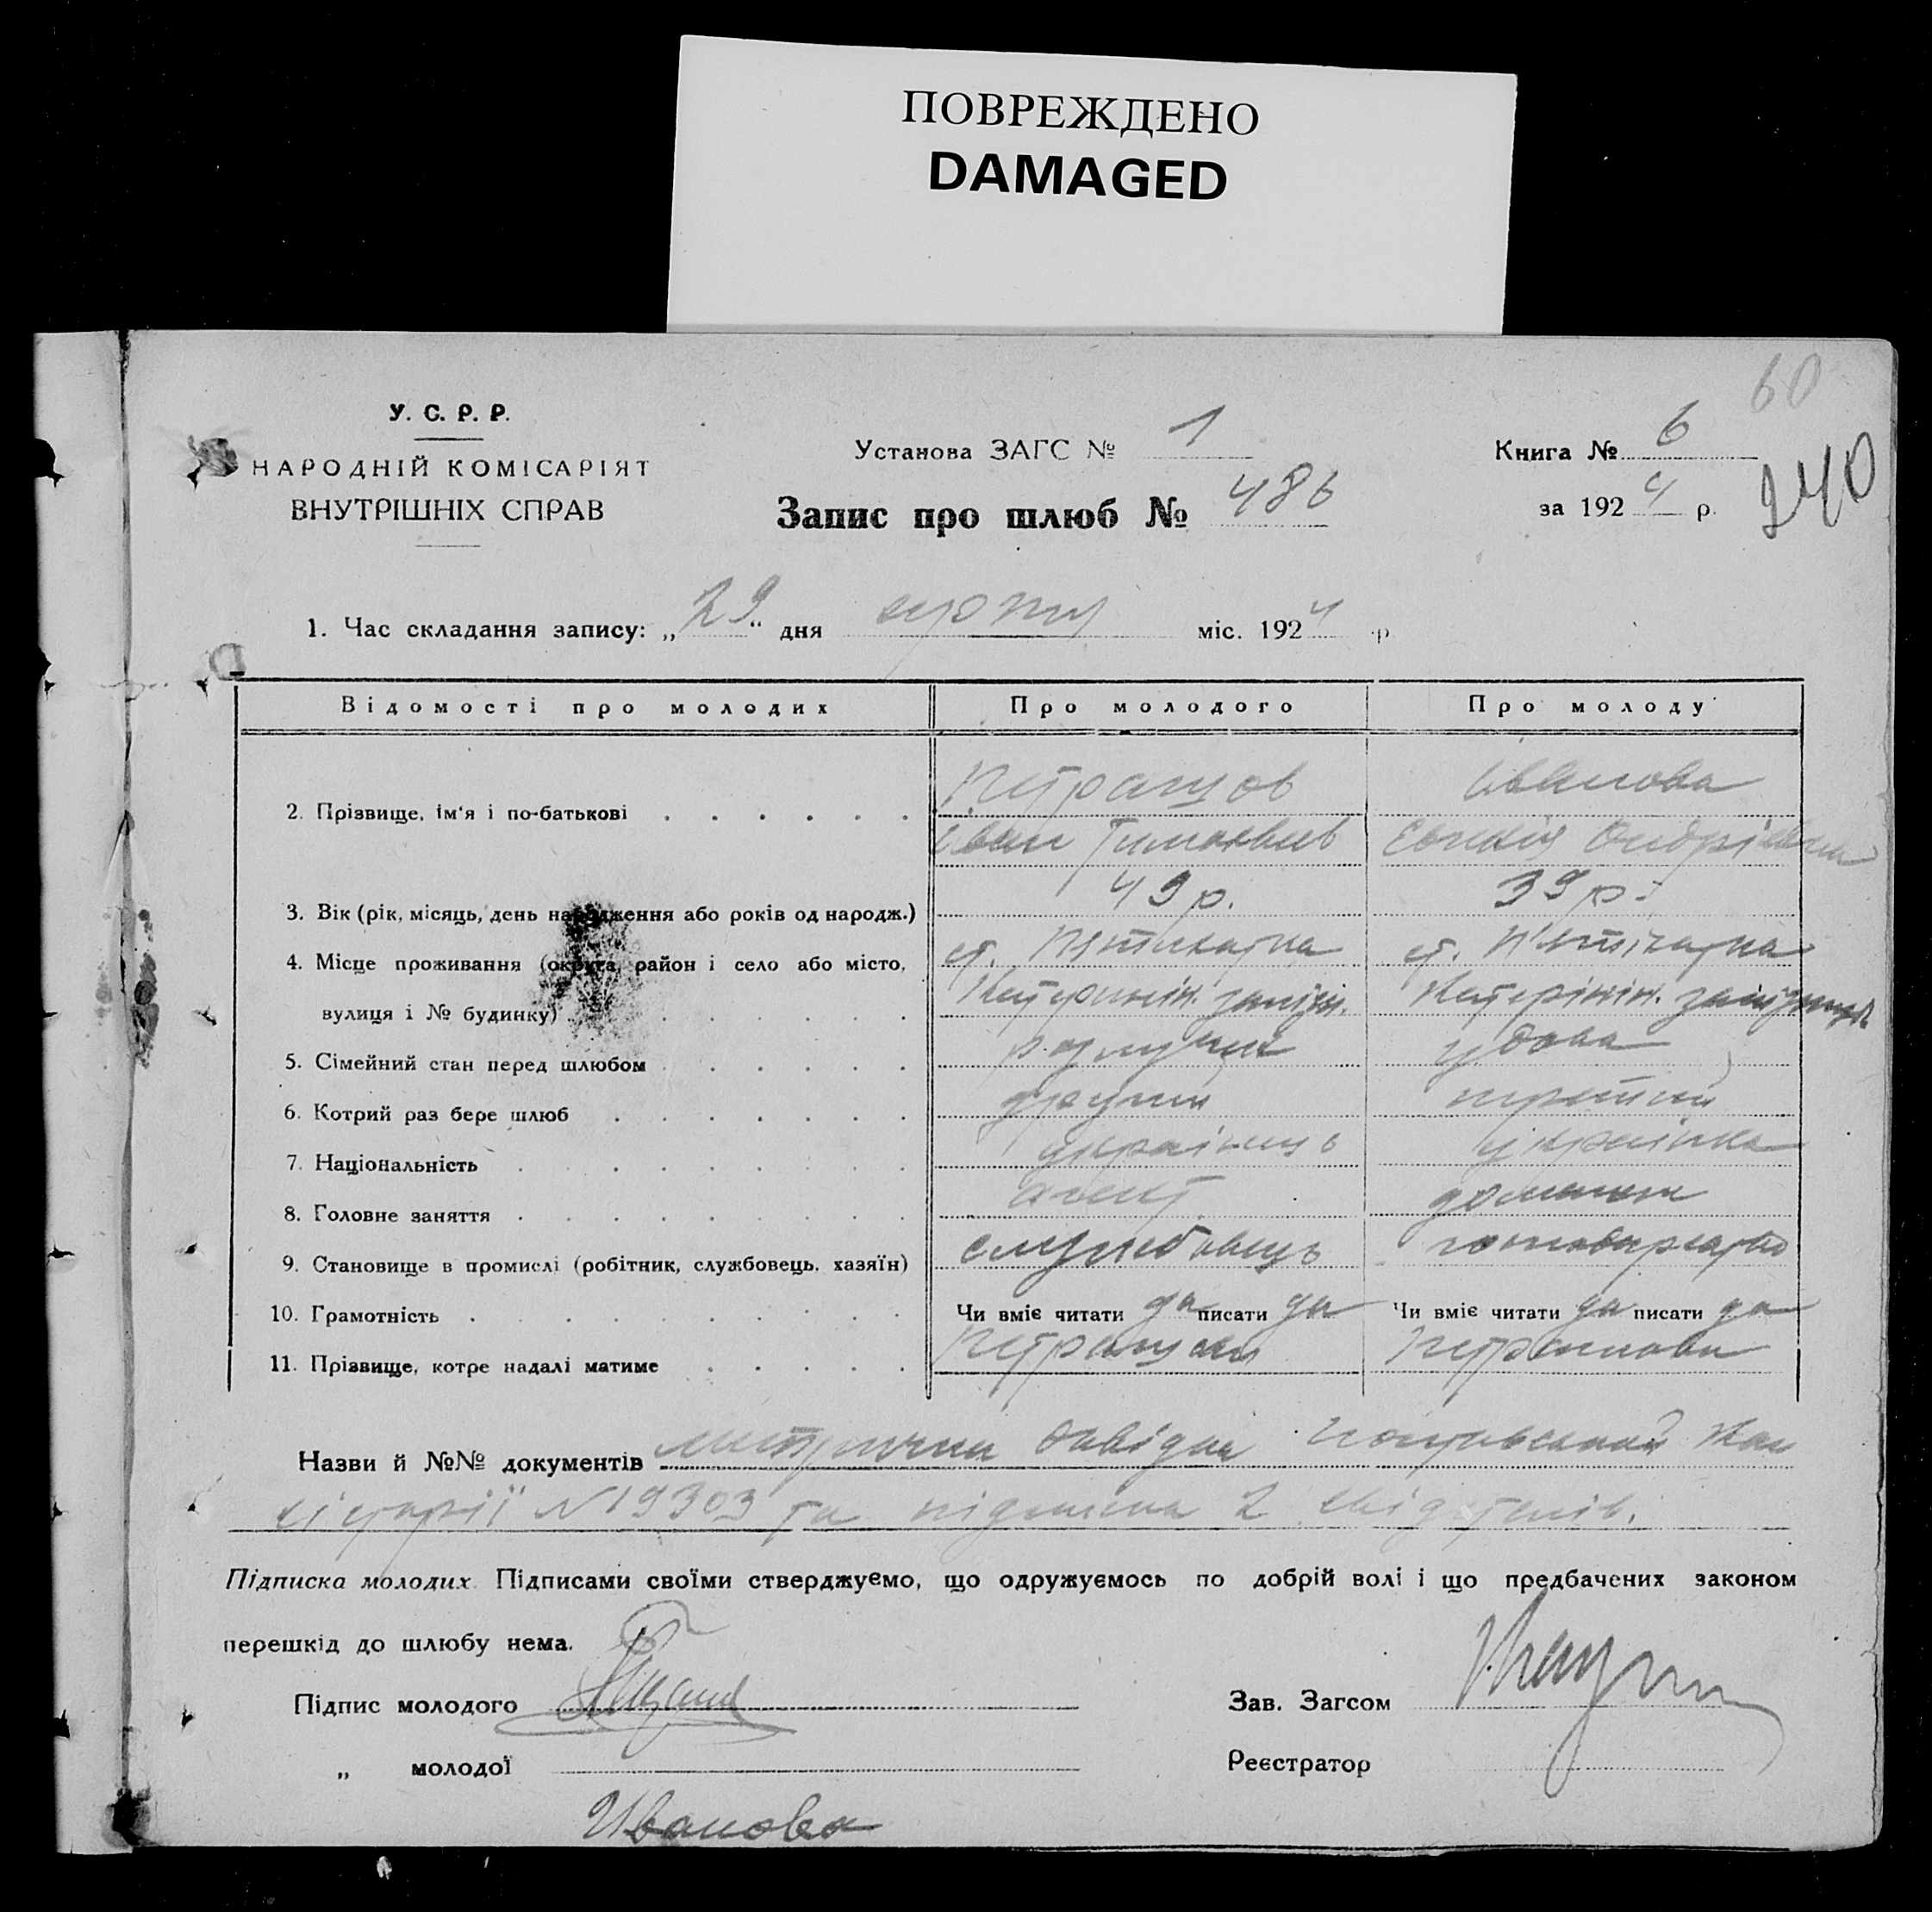 ПОВРЕЖДЕНО
DAMAGED
60
У. С. Р. Р.
НАРОДНІЙ КОМІСАРІЯТ
ВНУТРІШНІХ СПРАВ
Установа ЗАГС № 1
Запис про шлюб № 486
Книга № 6
за 1924 р.
240
1. Час складання запису: „29“ дня міс. 1924 р
Відомості про молодих Про молодого Про молоду
2. Прізвище, ім'я і по-батькові Петрашов Іванова
Іван Тимофіїв Андріївна
3. Вік (рік, місяць, день народження або років од народж.) 49 р. 39 р.
4. Місце проживання (округа, район і село або місто, ст. Пятихатка ст. П'ятихатка
вулиця і № будинку) Катеринін. залізн. Катерінін. залізниця
5. Сімейний стан перед шлюбом удова
6. Котрий раз бере шлюб другий третій
7. Національність українець українка
8. Головне заняття агент домашнє
9. Становище в промислі (робітник, службовець, хазяїн) службовець господарство
10. Грамотність Чи вміє читати да писати да Чи вміє читати да писати да
11. Прізвище, котре надалі матиме Петрашов Петрашова
Назви й №№ документів метрична довідка Кон
сісторії № 19303 та підписка 2 свідителів.
Підписка молодих. Підписами своїми стверджуємо, що одружуємось по добрій волі і що предбачених законом
перешкід до шлюбу нема.
Підпис молодого
Зав. Загсом
„ молодої
Реєстратор
Иванова